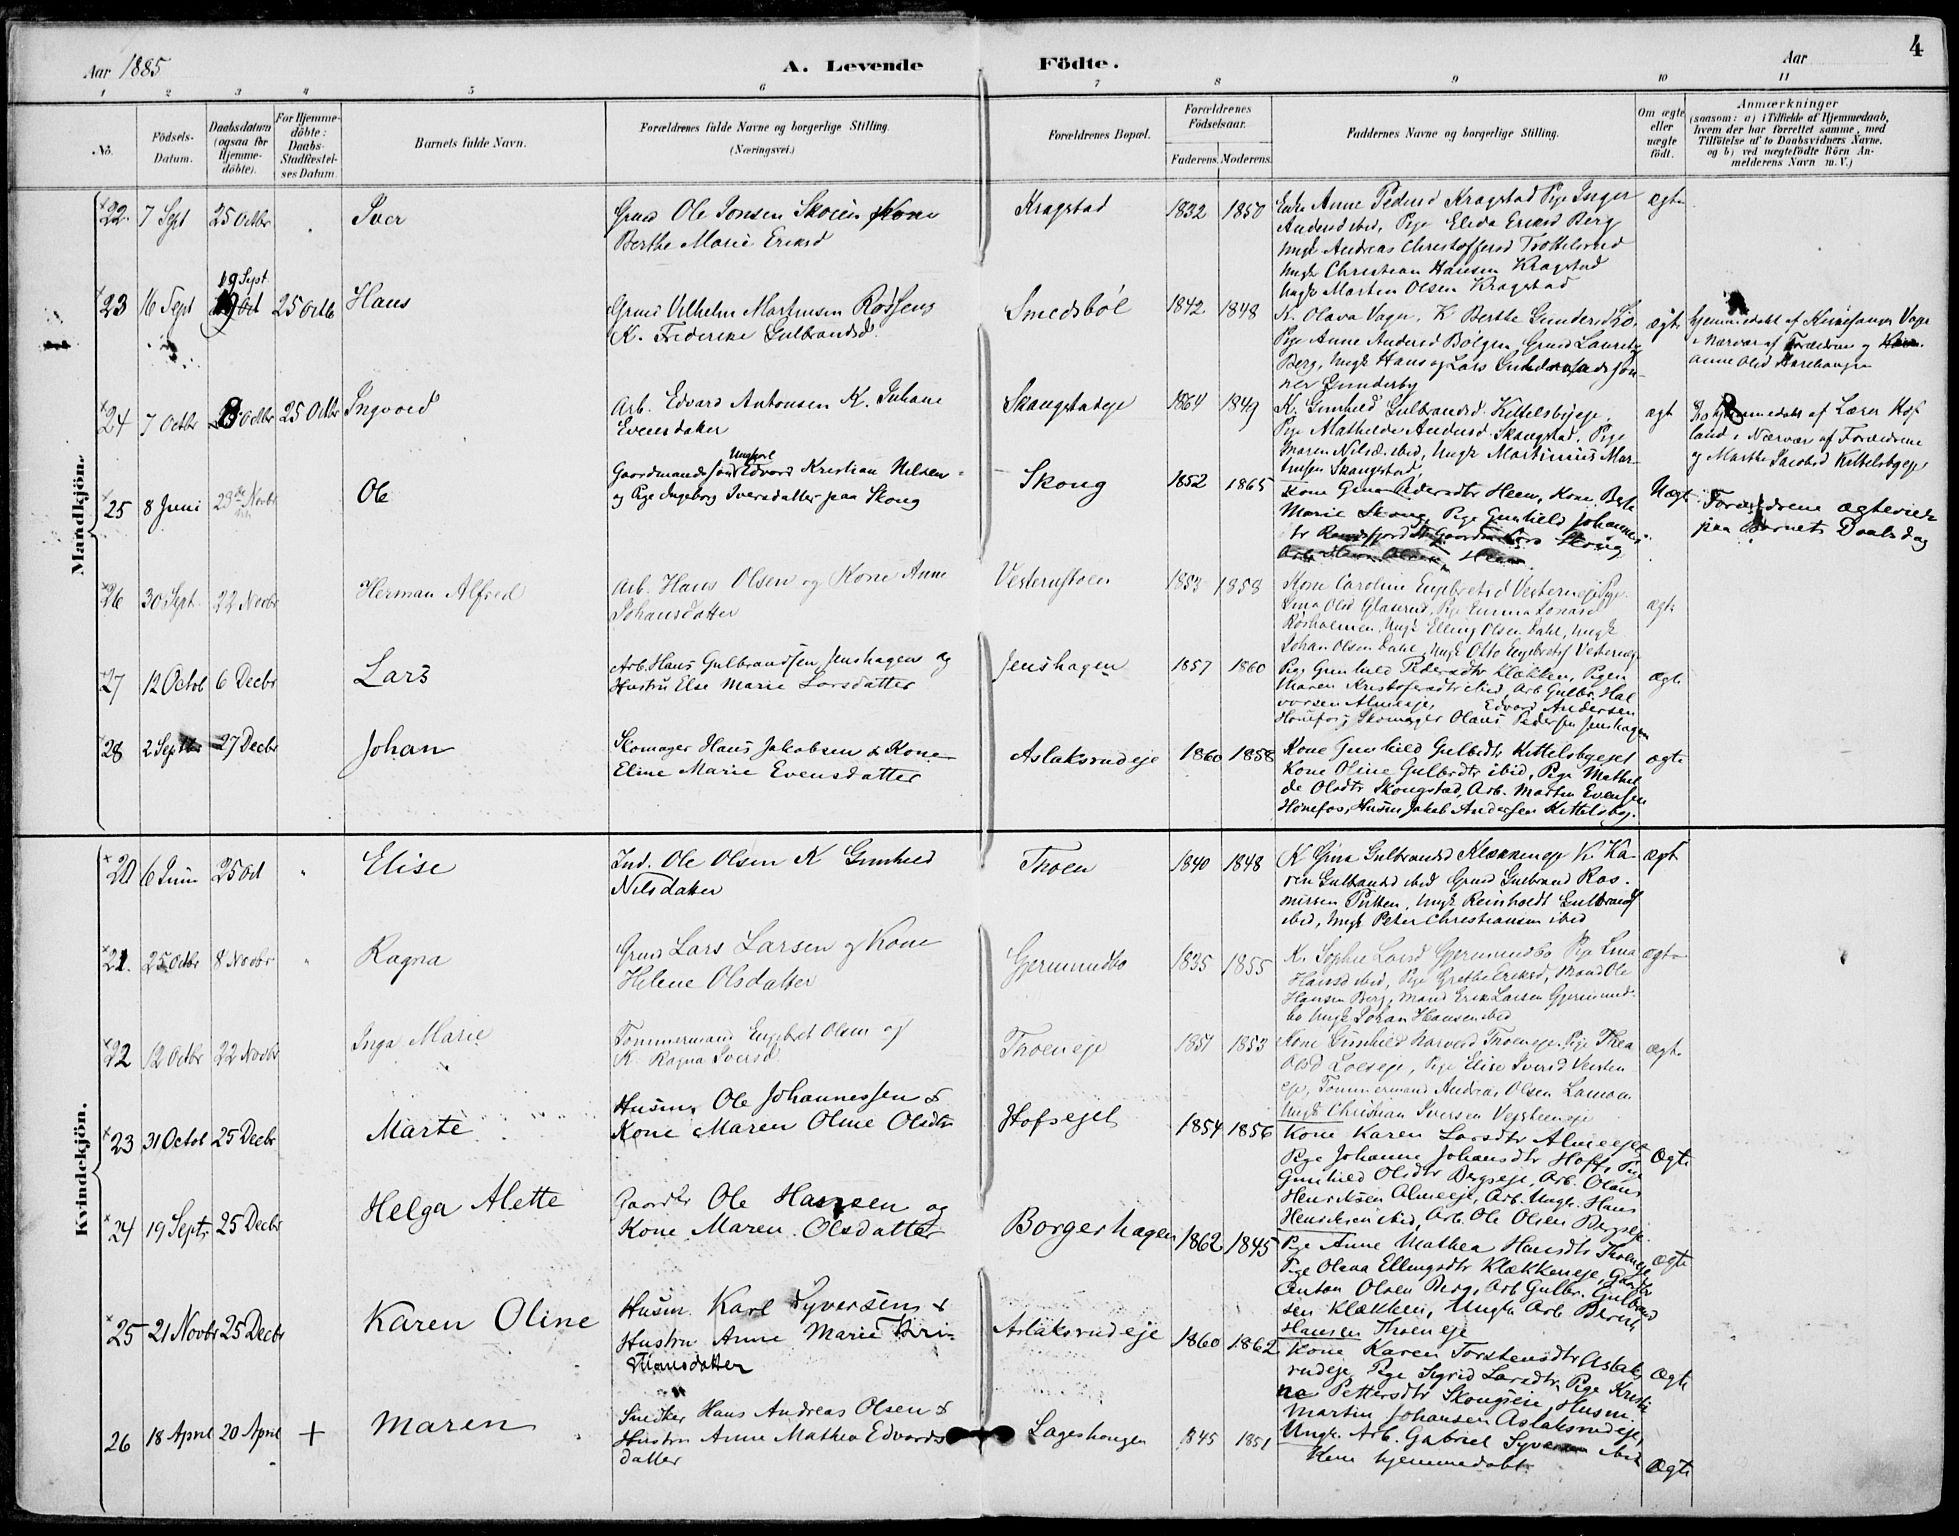 4
Aar 1885
A. Levende Födte.
Aar
1 2 3 4 5 6 7 8 9 10 11
No.
Födsels-Datum.
Daabsdatum (ogsaa for Hjemme-döbte).
For Hjemme-döbte: Daabs-Stadfæstel-ses Datum.
Barnets fulde Navn.
Forældrenes fulde Navne og borgerlige Stilling. (Næringsvei.)
Forældrenes Bopæl.
Forældrenes Födselsaar.
Faderens. Moderens.
Faddernes Navne og borgerlige Stilling.
Om ægte eller uægte födt.
Anmærkninger
(saasom: a) i Tilfælde af Hjemmedaab,
hvem der har forrettet samme, med
Tilföielse af to Daabsvidners Navne,
og b) ved uægtefödte Börn An-
melderens Navn m. V.)
Mandkjön.
22. 7 Sept 25 Octbr Iver
Ole Jonsen Skoien Kone
Berthe Marie Eriksd
Kragstad 1832 1850
Enke Anne Pedersd Kragstad Pige Inger
Andersd ibid, Pige Elida Eriksd Berg
Ungk Andreas Christoffersd
Ungk Christian Hansen Kragstad
Ungk Martin Olsen Kragstad
ægte
23 16 Sept 19 Sept 25 Octb Hans
Vilhelm Martinsen
K. Frederike Gulbrandsd.
Smedsböl 1842 1848
K. Olava Vagn, K Berthe Gundersd
Pige Anne Andersd Bölgen, Laurets
Berg, Ungk Hans og Lars
Gunderby
ægte
hjemmedöbt af
i Nærvær af Forældrene og
Anne Olsd
24 7 Octbr 8 Octbr 25 Octbr Ingvord
Arb. Edvard Antonsen K. Juhane
Evensdatter
Skaugstadeje 1864 1849
K. Gunhild Gulbrandsd Kittelsbyeje.
Pige Mathilde Andersd Skaugstad, Pige
Maren Nilsd. ibid, Ungk Martinius Mar-
tinsen Skaugstad
ægt
hjemmedöbt af Lærer Hof
land i Nærvær af Forældrene
og Marthe Jacobsd Kittelsbyeje
25 8 Juni Novbr Ole
Gaardmandssön Ungkarl Edvard Kristian Nilsen
og Pige Ingeborg Iversdatter paa Skoug
Skoug 1852 1865
Kone Gina Pedersdtr Heen, Kone Berte
Marie Skoug, Pige Gunhild Johannes
Skoug
Uægt
Forældrene ægteviede
paa Barnets Daabsdag
26 30 Sept. 22 Novbr Herman Alfred
Arb. Hans Olsen og Kone Anne
Johansdatter
1853 1858
Kone Caroline Engebretsd Vesterneje Pige
Lina Olsd Pige Emma
Ungk Elling Olsen Dahl, Ungk
Johan Olsen Dahl, Ungk Otto Engebretsen
ægte
27 12 Octob 6 Decbr Lars
Arb. Hans Gulbrandsen Jenshagen og
Hustru Else Marie Larsdatter
Jenshagen 1857 1860
Pige Gunhild Pedersdtr Klækken, Pigen
Maren Kristofersdtr ibid, Arb Gulbr. Hal
vorsen Almeeje, Edvard Andersen
Hönefos, Skomager Olaus Pedersen Jenshagen
ægte
28 27 Decbr Johan
Skomager Hans Jakobsen & Kone
Eline Marie Evensdatter
Aslaksrudeje 1860 1858
Kone Gunhild Gulbrdtr Kittelsbyejet
Kone Oline Gulbrdtr ibid, Pige Mathil
de Olsdtr Skougstad, Arb. Martin Evensen
Hönefos, Husm. Jakob Andersen Kittelsby.
ægte
Kvindekjön.
20 6 Juni 25 Oct Elise
Ind. Ole Olsen K Gunhild
Nilsdatter
Thoen 1840 1848
K Gina Gulbrandsd Klækkeneje K. Ka-
ren Gulbrandsd ibid Gulbrand Ras-
mussen Ungk Reinholdt Gulbrands
ibid, Ungk Peter Christiansen ibid
ægt
21. 25 Octbr 8 Novbr Ragna
Lars Larsen og Kone
Helene Olsdatter
Gjermundbo 1835 1855
K. Sophie Larsd Gjermundbo Pige Lina
Hansd ibid, Pige Grethe Eriksd, Mand Ole
Hansen Berg, Mand Erik Larsen Gjermund-
bo Ungk Johan Hansen ibid
ægte
22 12 Octbr 22 Novbr Inga Marie
Tömmermand Engebret Olsen og
K. Ragna Iversd
Thoeneje 1851 1853
Kone Gunhild Thoeneje, Pige Thea
Olsd Pige Elise Iversd
eje, Tömmermand Andreas Olsen
Ungk Christian Iversen
ægte
23 31 Octob 25 Decbr Marte
Husm. Ole Johannessen &
Kone Maren Oline Olsdtr
Hofsejet 1854 1856
Kone Karen Larsdtr Almeejet
Pige Johanne Johansdtr Hoft, Pige
Gunhild Olsdtr Bergseje, Arb. Olaus
Henriksen Almeeje, Arb. Ungk. Hans
Henriksen ibid, Arb. Ole Olsen Bergseje
Ægte
24 19 Septr 25 Decbr Helga Alette
Gaardbr Ole Hansen og
Kone Maren Olsdatter
Borgerhagen 1862 1845
Pige Anne Mathea Hansdtr Thoeneje
Pige Olena Ellingsdtr Klækkeneje, Gaardbr
Anton Olsen Berg, Arb Gulbr. Gulbrand
sen Klækken, Ungk. Arb. Bernt
Hansen Thoeneje
Ægte
25 21 Novbr 25 Decbr Karen Oline
Husm. Karl Syversen &
Hustru Anne Marie Kri-
stiansdatter
Aslaksrudeje 1860 1862
Kone Karen Torstensdtr Aslaks
rudeje Pige Sigrid Larsdtr, Pige Kristi
ne Pettersdtr Skougseie, Husm.
Martin Johansen Aslaksrudeje,
Ungk. Arb. Gabriel Syversen ibid
Ægte
26 18 April 20 April + Maren
Snedker Hans Andreas Olsen &
Hustru Anne Mathea Edvards
datter
Lageshaugen 1845 1851
Kun hjemmedöbt
Ægte